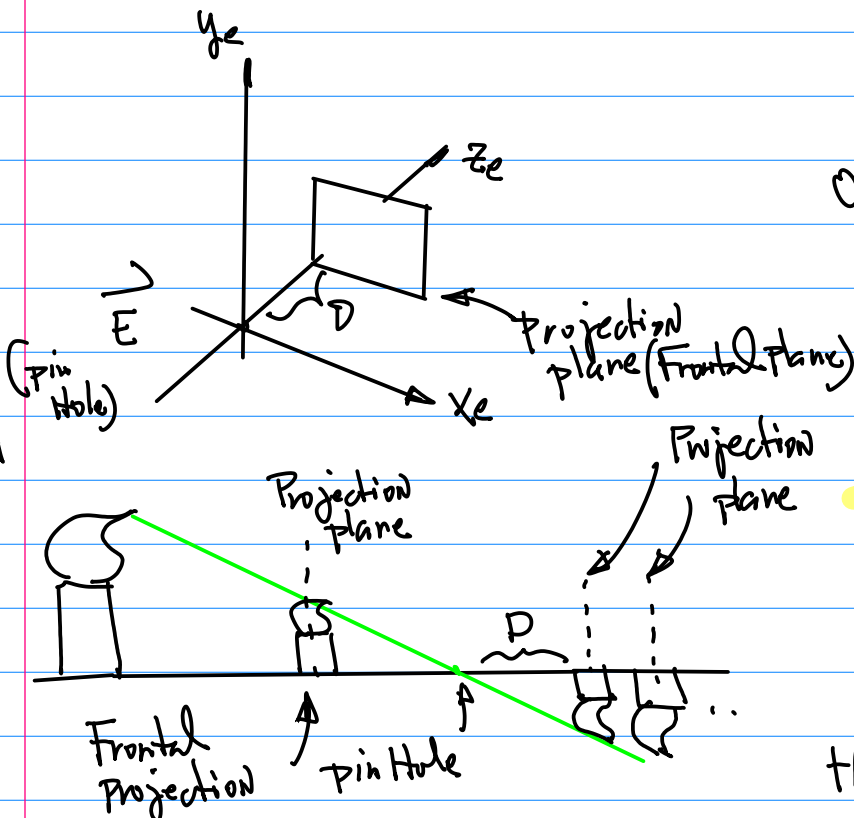 ye
ze
E
D
(pin
Hole)
projection
plane (Frontal Plane)
Xe
Projection
plane
Projection
plane
D
Frontal
projection
pin Hole
..